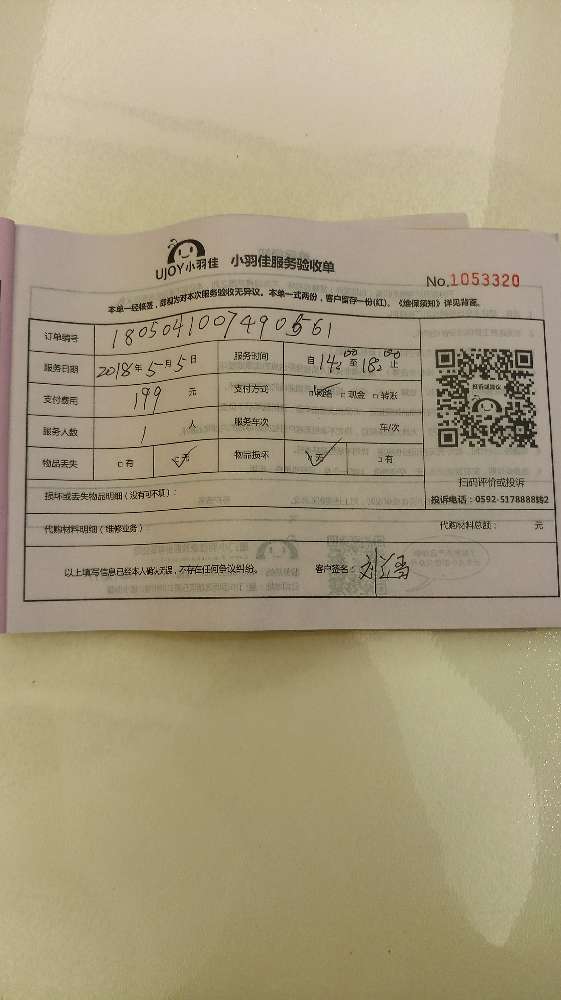 UJOY小羽佳 小羽佳服务验收单
No.1053320
本单一经核签，即视为对本次服务验收无异议。本单一式两份，客户留存一份(红)。《维保须知》详见背面。
订单编号 1805041007490561
服务日期 2018年5月5日 服务时间 自14:00至18:00止
支付费用 199元 支付方式 网络 □现金 □转账
服务人数 1人 服务车次 车/次
物品丢失 □有 ☑无 物品损坏 ☑无 □有
扫码评价或投诉
损坏或丢失物品明细（没有可不填）：
投诉电话：0592-5178888转2
代购材料明细（维修业务） 代购材料总额： 元
以上填写信息已经本人确认无误，不存在任何争议纠纷。 客户签名：